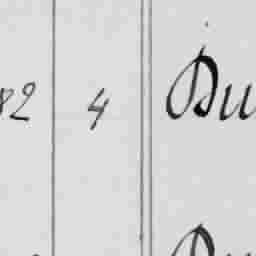 82 4 Du